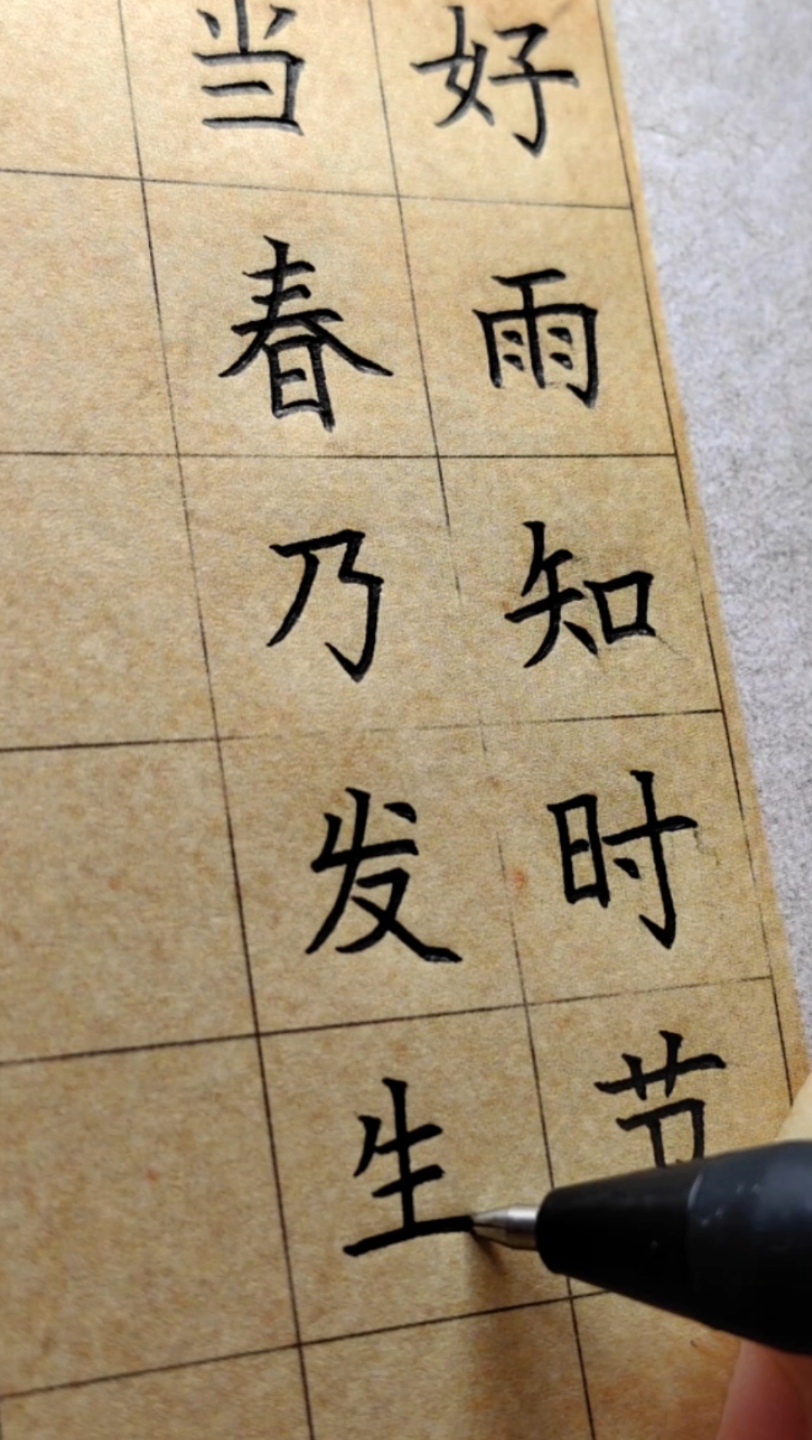 好雨知时节
当春乃发生